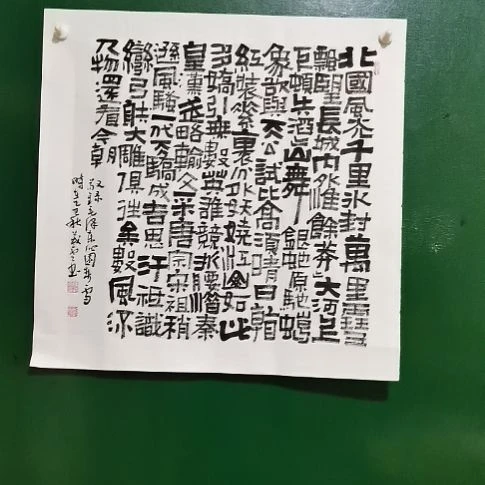 北國風光千里冰封萬里雪
飄望長城內外惟餘莽大河上
下頓失滔山舞銀蛇原馳蠟
象欲與天公試比高須晴日看
紅裝素裹分外妖嬈江山如此
多嬌引無數英雄競折腰惜秦
皇漢武略輸文采唐宗宋祖稍
遜風騷一代天驕成吉思汗祇識
彎弓射大雕俱往矣數風流
人物還看今朝
敬录毛泽东沁園春雪
時在秋書